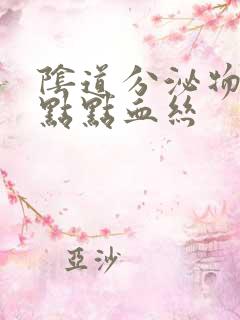 陰道分泌物
點點血絲
亞沙